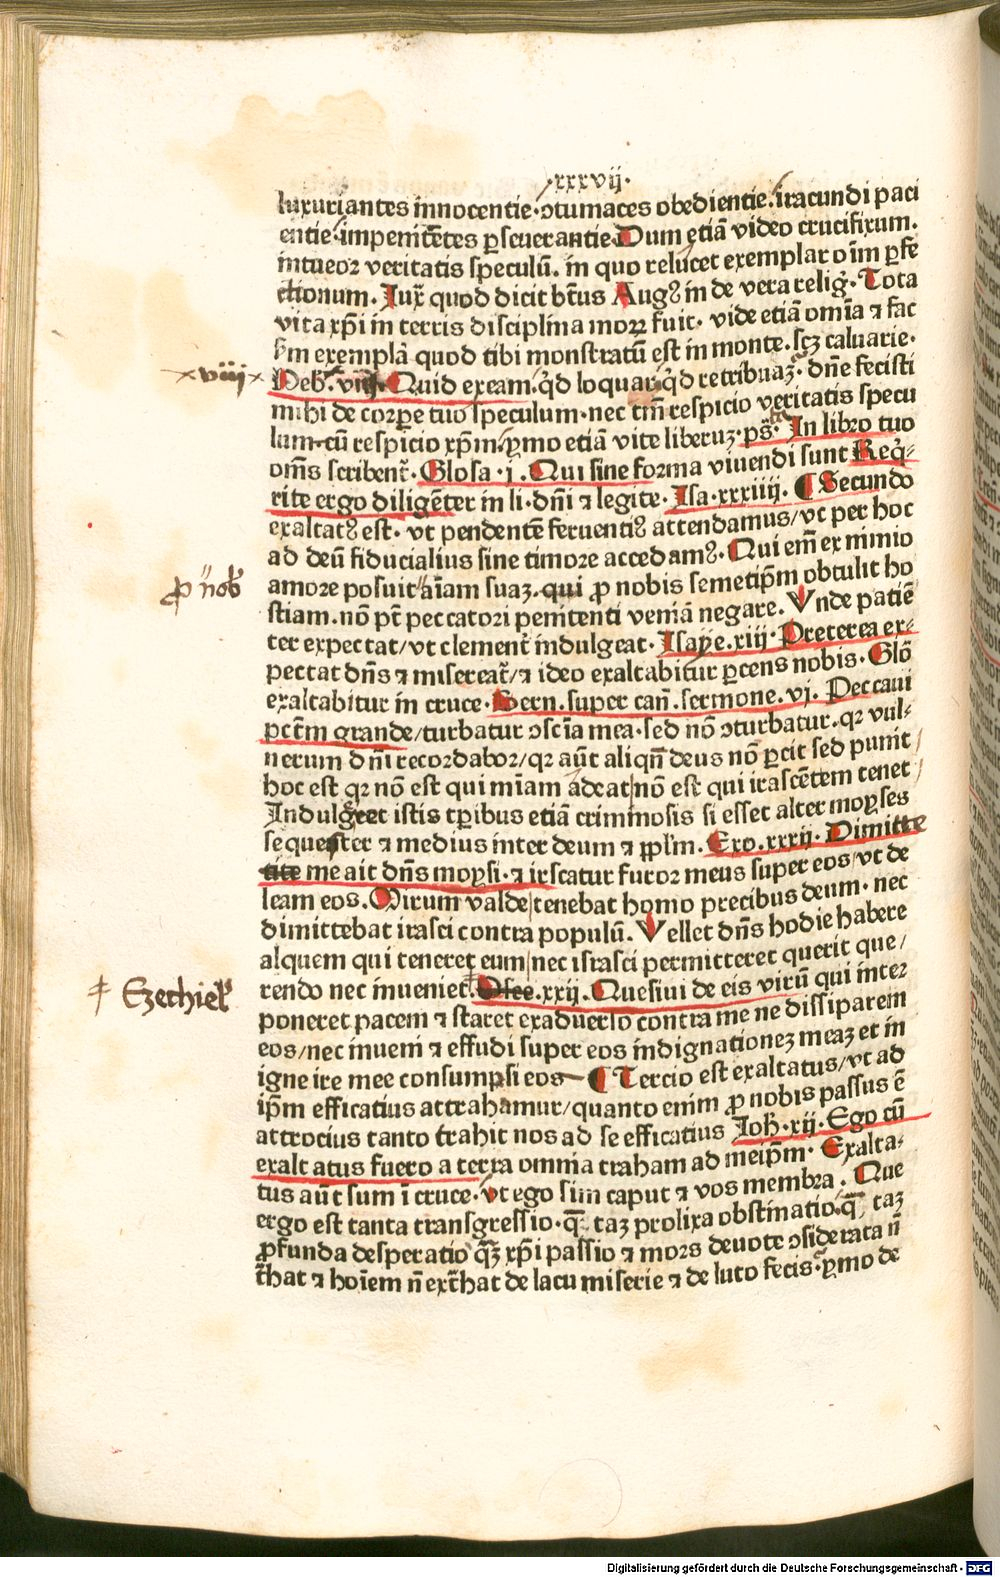 .xxxvij.
luxuriantes innocentie·ↄtumaces obedientie.iracundi paci
entie.impenitētes ꝑseuerantie Dum etiā video crucifixum.
intueor veritatis speculū. in quo relucet exemplar oīm ꝑfe
ctionum. Iux̄ quod dicit btūs Augꝰ in de vera relig̃·Tota
vita xp̄i in terris disciplina moꝝ fuit· vide etiā om̄ia ⁊ fac
s̄m exemplā quod tibi monstratū est in monte.scꝫ caluarie·
xviij Heb̄. viij. Quid exeam.q̇d loquar.q̇d retribuaꝫ. dn̄e fecisti
mihi de corꝑe tuo speculum·nec tm̄ respicio veritatis specu
lum·cū respicio xp̄m.ymo etiā vite liberuꝫ·ps̄. In libro tuo
om̄s scribent̃. Glosa·i.Qui sine forma viuendi sunt Req̇
rite ergo diligēter in li·dn̄i ⁊ legite. Isa·xxxiiij. ¶ Secundo
exaltatꝰ est· vt pendentē feruentiꝰ attendamus/vt per hoc
ad deū fiducialius sine timore accedamꝰ.Qui em̄ ex nimio
ꝓ nob̄ amore posuit aīam suaꝫ.qui ꝓ nobis semetip̄m obtulit ho
stiam.nō pt̄ peccatori penitenti veniā negare. Vnde patiē
ter expectat/vt clement̃ indulgeat·Isaye.xiij·Preterea ex
pectat dn̄s ⁊ misereat̃/⁊ ideo exaltabitur ꝑcens nobis·Glō
exaltabitur in cruce·Bern.super can̄.sermone.vj. Peccaui
pctm̄ grande/turbatur ↄsciā mea·sed nō ↄturbatur.qꝛ vul
nerum dn̄i recordabor/qꝛ aūt aliqn̄ deus nō ꝑcit sed punit
hoc est qꝛ nō est qui mīam adeat/nō est qui irascētem tenet
Indulgeret istis tꝑibus etiā criminosis si esset alter moyses
sequester ⁊ medius inter deum ⁊ ppl̄m. Exo.xxxij·Dimitte
me ait dn̄s moysi·⁊ irscatur furor meus super eos/vt de
leam eos.Mirum valde/tenebat homo precibus deum· nec
dimittebat irasci contra populū.Vellet dn̄s hodie habere
alquem qui teneret eum/nec israsci permitteret querit que/
Ezechiel rendo nec inueniet. Osee.xxij.Quesiui de eis virū qui inter
poneret pacem ⁊ staret exaduerso contra me ne dissiparem
eos/nec inueni ⁊ effudi super eos indignationeꝫ meaꝫ et in
igne ire mee consumpsi eos ¶ Tercio est exaltatus/vt ad
ip̄m efficatius attrahamur/quanto enim ꝓ nobis passus ē
attrocius tanto trahit nos ad se efficatius Joh̄·xij·Ego cū
exaltatus fuero a terra omnia traham ad meip̄m· Exalta
tus aūt sum ī cruce·vt ego sim caput ⁊ vos membra· Que
ergo est tanta transgressio·q̄ taꝫ prolixa obstinatio.q̄ taꝫ
ꝓfunda desperatio q̄ꝫ xp̄i passio ⁊ mors deuote ↄsiderata n̄
t̃hat ⁊ hoīem n̄ ext̃hat de lacu miserie ⁊ de luto fecis·ymo de
Digitalisierung gefördert durch die Deutsche Forschungsgemeinschaft · DFG